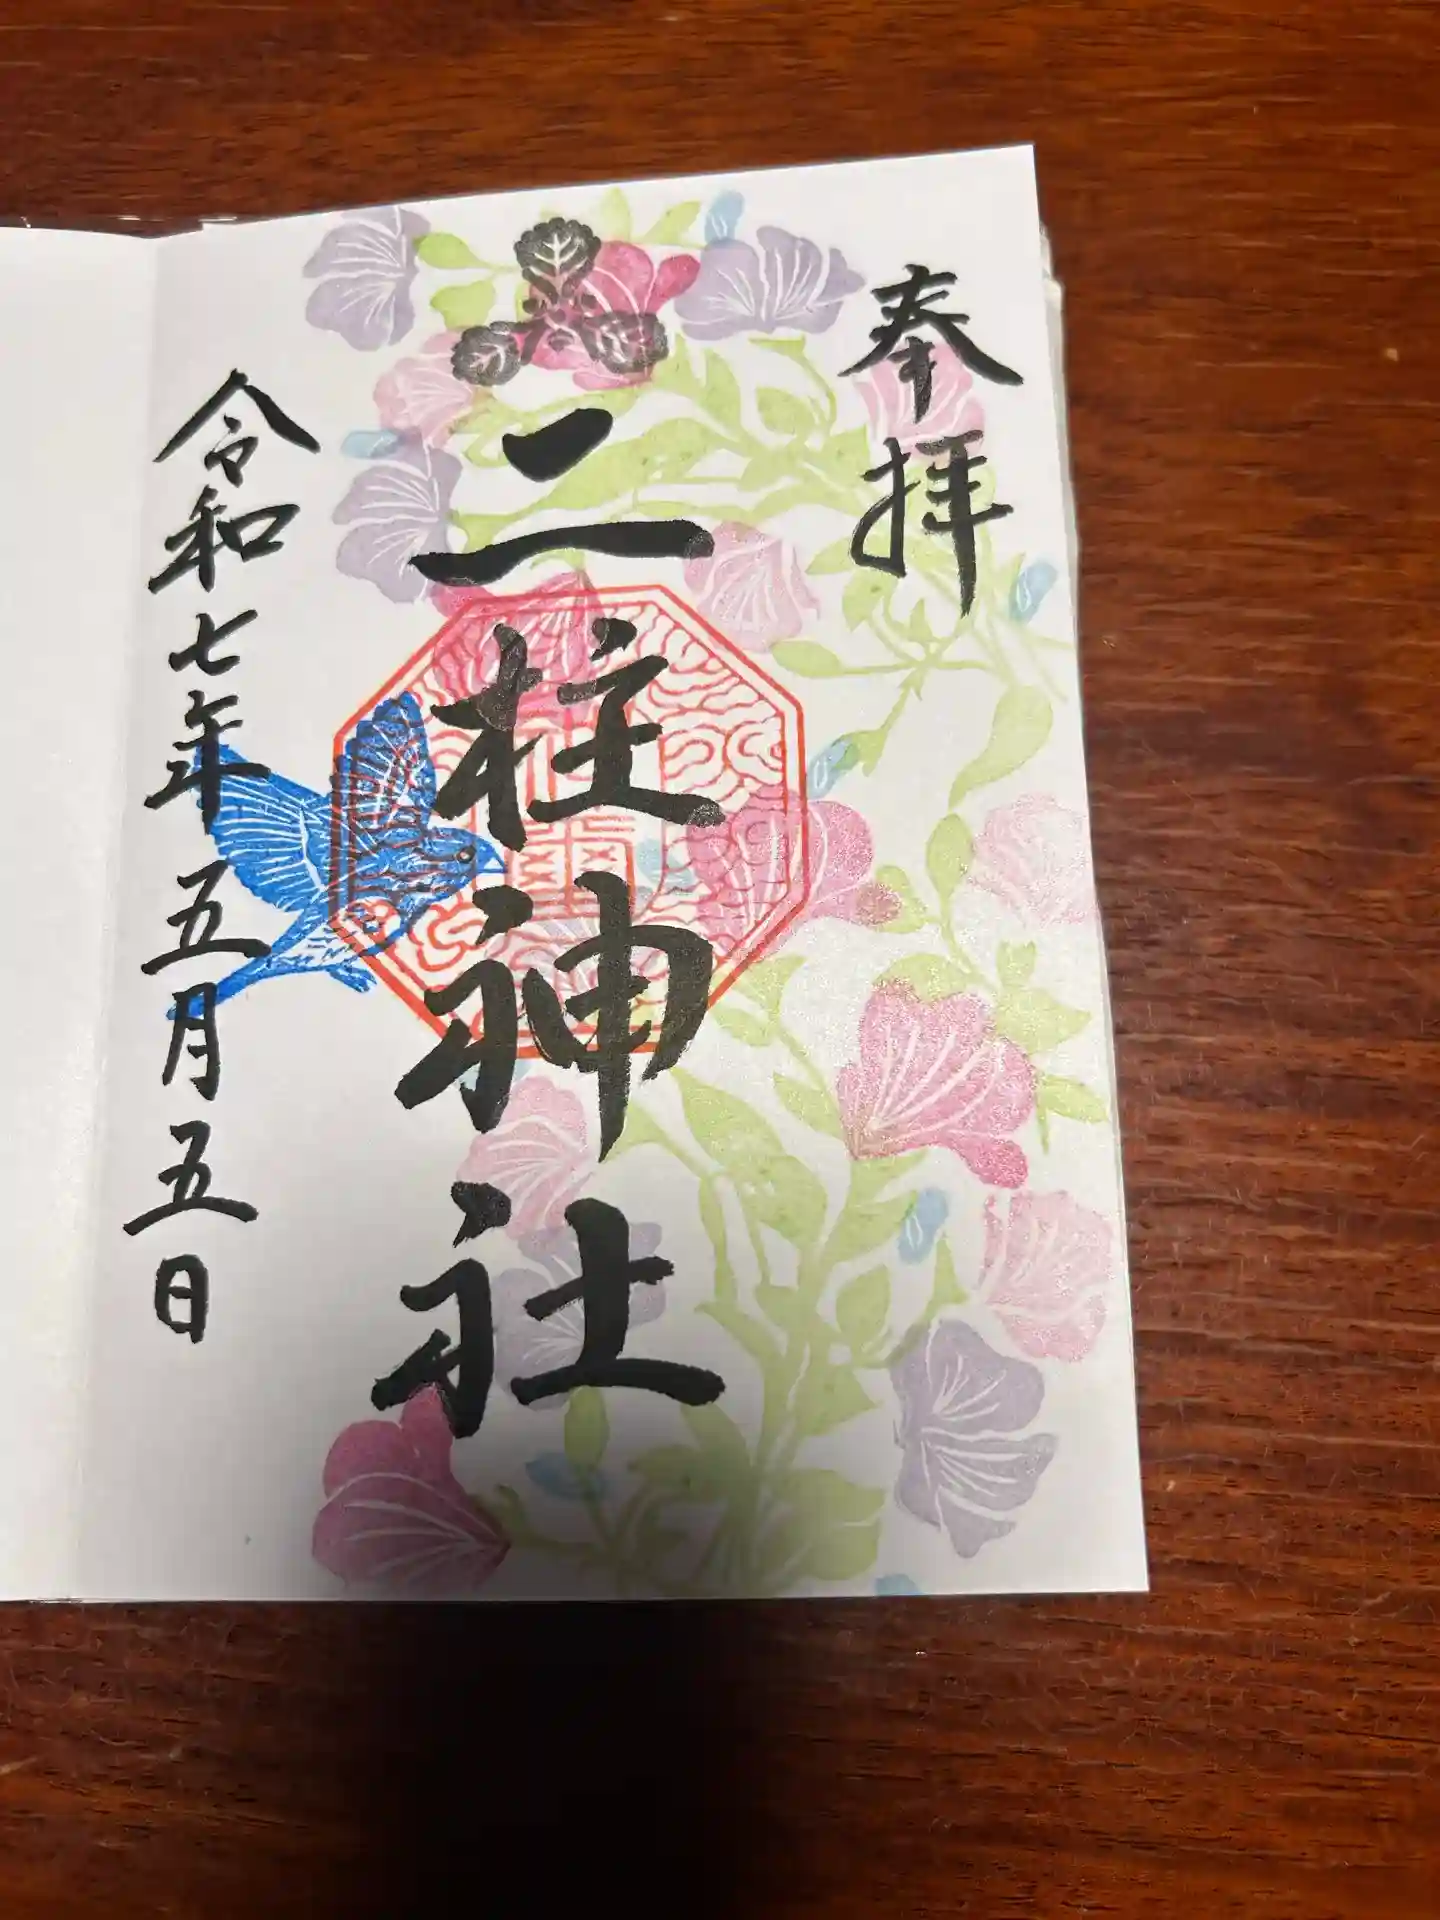 奉拝
二柱神社
令和七年五月五日